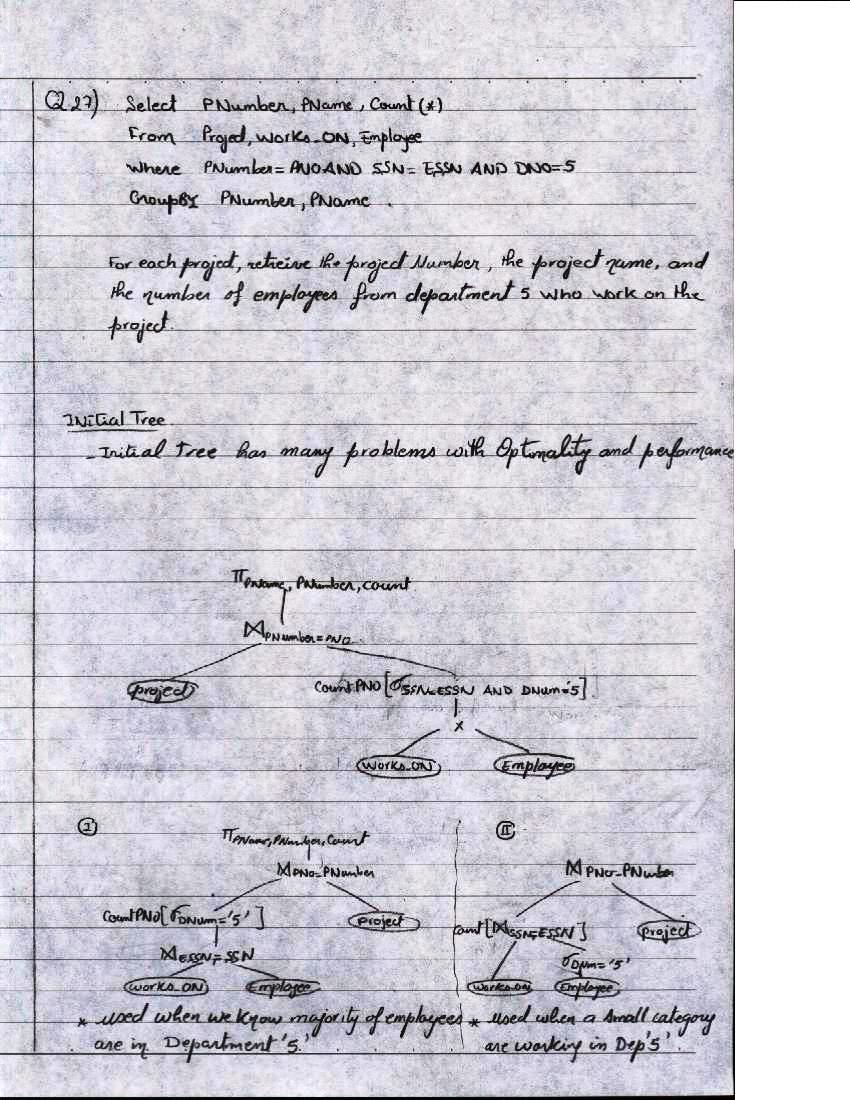 Q27) Select PNumber, PName, Count(*)
From Project, Works_ON, Employee
Where PNumber = PNO AND SSN = ESSN AND DNO=5
GroupBY PNumber, PName.
For each project, retreive the project Number, the project name, and
the number of employees from department 5 who work on the
project.
INitial Tree
- Initial Tree has many problems with Optimality and performance
π PName, PNumber, count
⋈ PNumber = PNO
project
Count PNO [σ SSN=ESSN AND DNum='5']
x
Works_ON Employee
I
π PName, PNumber, Count
⋈ PNO=PNumber
Count PNO [σ DNum='5']
project
⋈ ESSN=SSN
Works_ON Employee
* used when we know majority of employees
are in Department '5'.
II
⋈ PNO=PNumber
ount [⋈ SSN=ESSN]
project
σ DNum='5'
Works_ON Employee
* used when a small category
are working in Dep '5'.